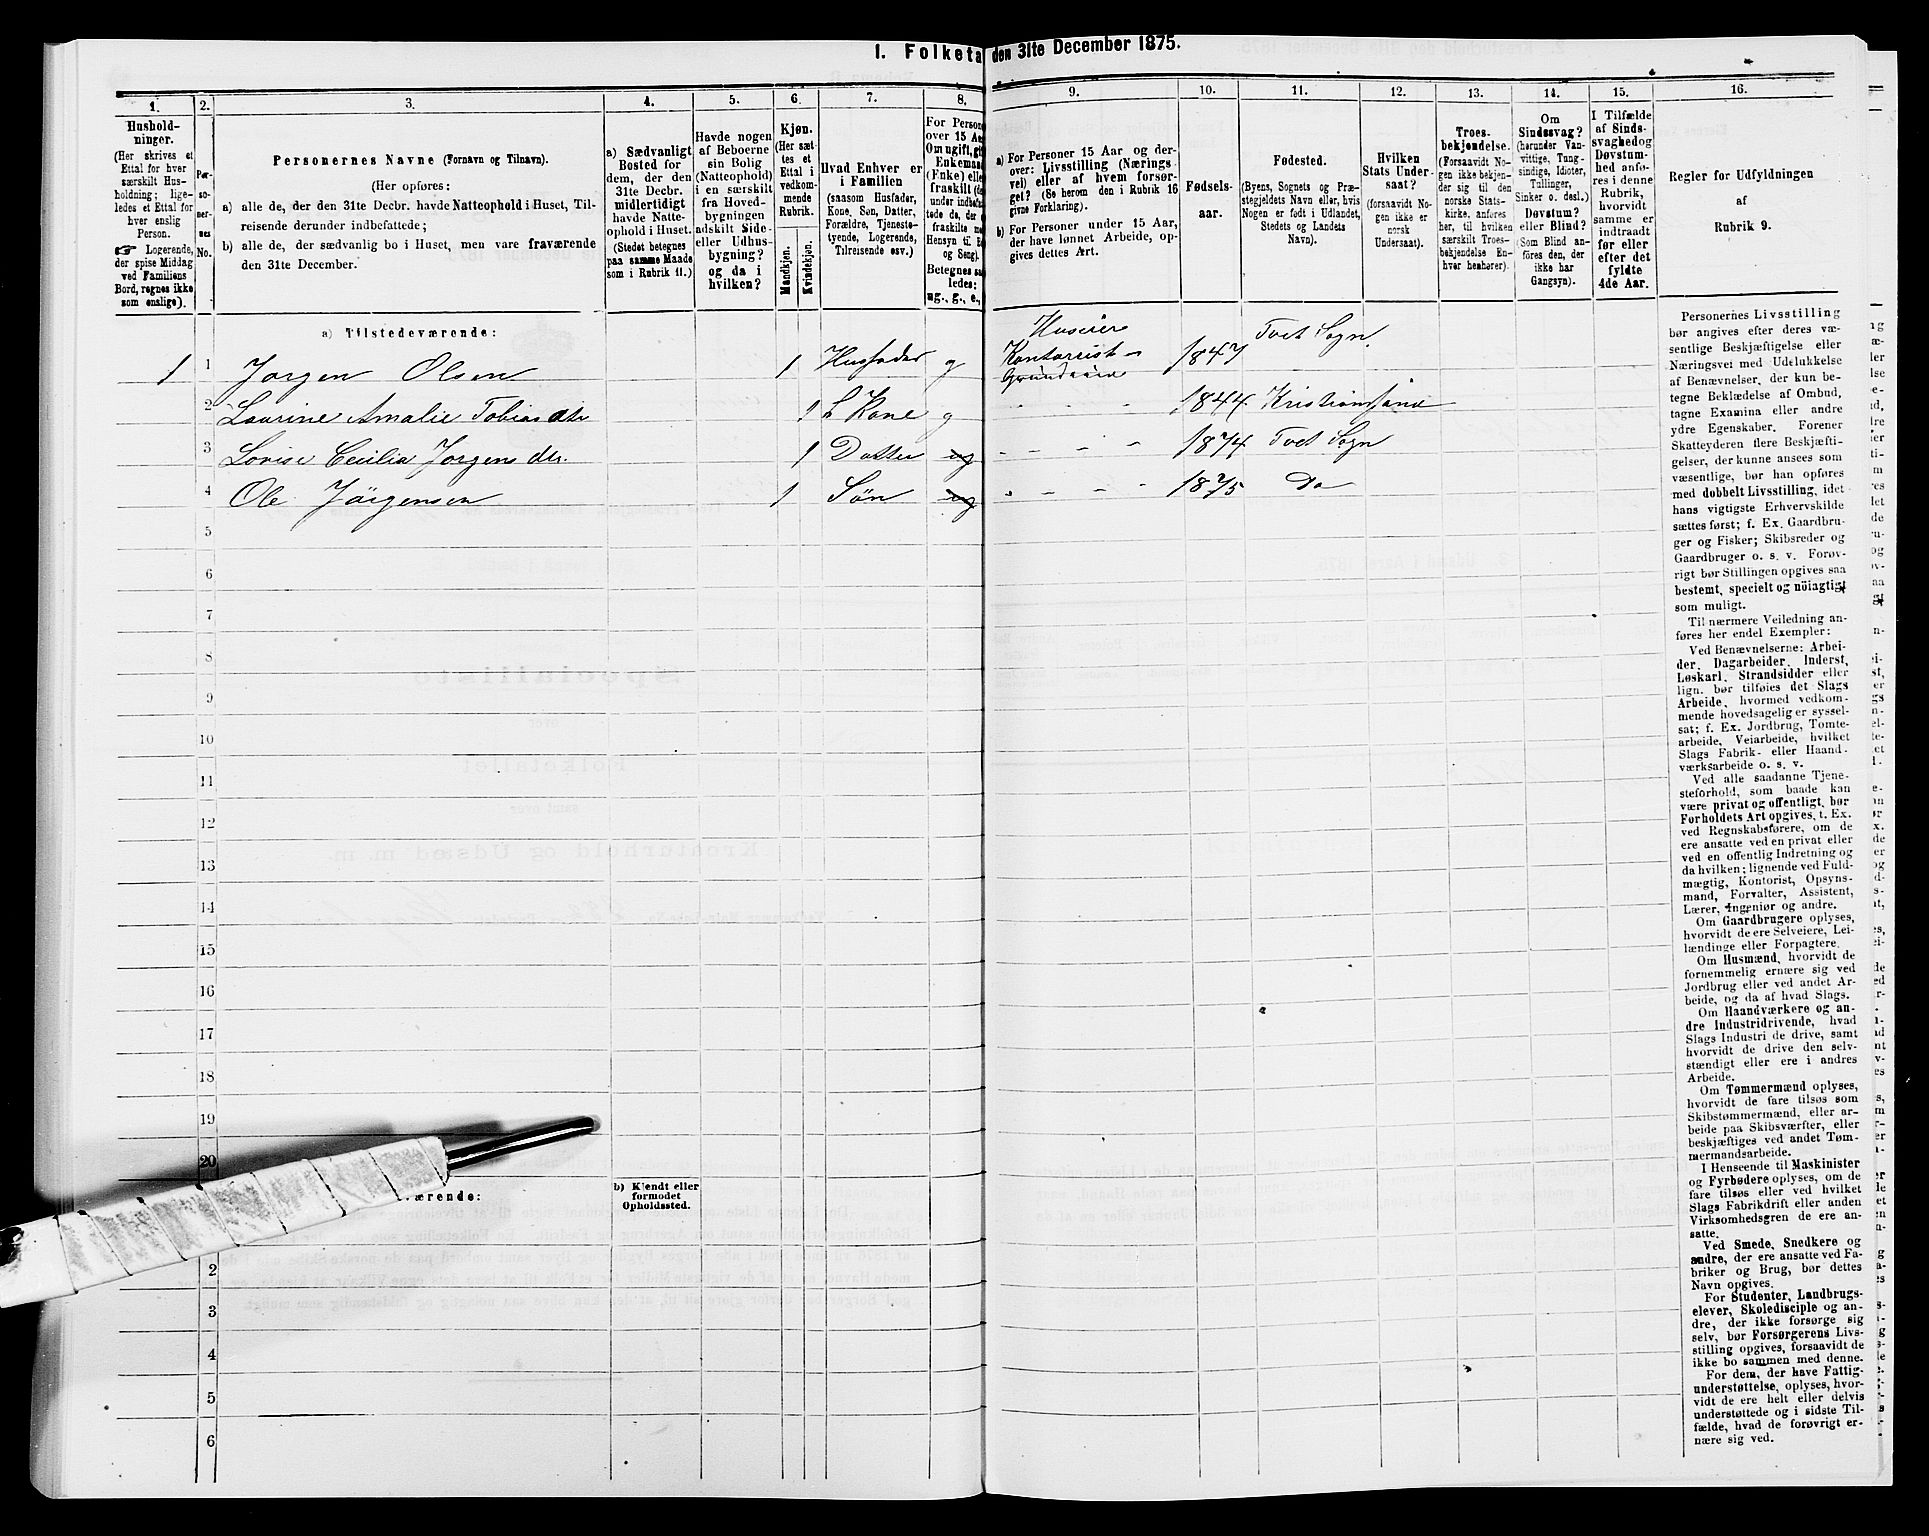 1. Folketa den 31te December 1875.
1. 2. 3. 4. 5. 6. 7. 8. 9. 10. 11. 12. 13. 14. 15. 16.
Hushold-
ninger.
(Her skrives et
Ettal for hver
særskilt Hus-
holdning; lige-
ledes et Ettal for
hver enslig
Person.
☛ Logerende,
der spise Middag
ved Familiens
Bord, regnes ikke
som enslige).
Per-
so-
ner-
nes
No.
Personernes Navne (Fornavn og Tilnavn).
(Her opføres:
a) alle de, der den 31te Decbr. havde Natteophold i Huset, Til-
reisende derunder indbefattede;
b) alle de, der sædvanlig bo i Huset, men vare fraværende
den 31te December.
a) Sædvanligt
Bosted for
dem, der den
31te Decbr.
midlertidigt
havde Natte-
ophold i Huset.
(Stedet betegnes
paa samme Maade
som i Rubrik 11.)
Havde nogen
af Beboerne
sin Bolig
(Natteophold)
i en særskilt
fra Hoved-
bygningen
adskilt Side-
eller Udhus-
bygning?
og da i
hvilken?
Kjøn.
(Her sæt-
tes et
Ettal i
vedkom-
mende
Rubrik.
Mandkjøn.
Kvindekjøn.
Hvad Enhver er
i Familien
(saasom Husfader,
Kone, Søn, Datter,
Forældre, Tjeneste-
tyende, Logerende,
Tilreisende osv.)
For Person
over 15 Aa
Om ugift, gi
Enkemand
(Enke) elle
fraskilt (de
under indbefat-
tede de, der e
fraskilte me
Hensyn til B
og Seng).
Betegnes saa
ledes:
ug., g., e.,
a) For Personer 15 Aar og der-
over: Livsstilling (Nærings
vei) eller af hvem forsør-
get? (Se herom den i Rubrik 16
givne Forklaring).
b) For Personer under 15 Aar,
der have lønnet Arbeide, op-
gives dettes Art.
Fødsels-
aar.
Fødested.
(Byens, Sognets og Præ-
stegjeldets Navn eller, hvis
Nogen er født i Udlandet,
Stedets og Landets
Navn).
Hvilken
Stats Under-
saat?
(forsaavidt No-
gen ikke er
norsk
Undersaat).
Troes-
bekjendelse.
(Forsaavidt No-
gen ikke bekjen-
der sig til den
norske Stats-
kirke, anføres
her, til hvilken
særskilt Troes-
bekjendelse En-
hver henhører).
Om
Sindssvag?
(herunder Van-
vittige, Tung-
sindige, Idioter,
Tullinger,
Sinker o. desl.)
Døvstum?
eller Blind?
(Som Blind an-
føres den, der
ikke har
Gangsyn).
I Tilfælde
af Sinds-
svaghed og
Døvstum-
hed anfø-
res i denne
Rubrik,
hvorvidt
samme er
indtraadt
før eller
efter det
fyldte
4de Aar.
Regler for Udfyldningen
af
Rubrik 9.
a) Tilstedeværende:
1 1 Jørgen Olsen 1 Husfader g Huseier Kontorist - Grundeier 1847 Tvet Sogn
2 Laurine Amalie Tobiasdtr 1 h Kone g " " " 1844 Kristianssand
3 Lovise Cecilia Jørgensdtr. 1 Datter ug " " " 1874 Tvet Sogn
4 Ole Jörgensen 1 Sön ug " " " " 1875 Do
5
6
7
8
9
10
11
12
13
14
15
16
17
18
19
20
ærende:
b) Kjendt eller
formodet
Opholdssted.
2
3
4
5
6
Personernes Livsstilling
bør angives efter deres væ-
sentlige Beskjæftigelse eller
Næringsvei med Udelukkelse
af Benævnelser, der kun be-
tegne Beklædelse af Ombud,
tagne Examina eller andre
ydre Egenskaber. Forener
Skatteyderen flere Beskjæfti-
gelser, der kunne ansees som
væsentlige, bør han opføres
med dobbelt Livsstilling, idet
hans vigtigste Erhvervskilde
sættes først; f. Ex. Gaardbru-
ger og Fisker; Skibsreder og
Gaardbruger o. s. v. Forøv-
rigt bør Stillingen opgives saa
bestemt, specielt og nöiagtigt
som muligt.
Til nærmere Veiledning an-
føres her endel Exempler:
Ved Benævnelserne: Arbei-
der, Dagarbeider, Inderst,
Løskarl, Strandsidder eller
lign. bør tilføies det Slags
Arbeide, hvormed vedkom-
mende hovedsagelig er syssel-
sat; f. Ex. Jordbrug, Tomte-
arbeide, Veiarbeide, hvilket
Slags Fabrik- eller Haand-
værksarbeide o. s. v.
Ved alle saadanne Tjene-
steforhold, som baade kan
være privat og offentligt, bør
Forholdets Art opgives, t. Ex.
ved Regnskabsførere, om de
ere ansatte ved en privat eller
ved en offentlig Indretning og
da hvilken; lignende ved Fuld-
mægtig, Kontorist, Opsyns-
mand, Forvalter, Assistent,
Lærer, Ingeniør og andre.
Om Gaardbrugere oplyses,
hvorvidt de ere Selveiere, Lei-
lændinge eller Forpagtere.
Om Husmænd, hvorvidt de
fornemmelig ernære sig ved
Jordbrug eller ved andet Ar-
beide, og da af hvad Slags.
Om Haandværkere og an-
dre Industridrivende, hvad
Slags Industri de drive, samt
hvorvidt de drive den selv-
stændigt eller ere i andres
Arbeide.
Om Tømmermænd oplyses,
hvorvidt de fare tilsøs som
Skibstømmermænd, eller ar-
beide paa Skibsværfter, eller
beskjæftiges ved andet Tøm-
mermandsarbeide.
I Henseende til Maskinister
og Fyrbødere oplyses, om de
fare tilsøs eller ved hvilket
Slags Fabrikdrift eller anden
Virksomhedsgren de ere an-
satte.
Ved Smede, Snedkere og
andre, der ere ansatte ved Fa-
briker og Brug, bør dettes
Navn opgives.
For Studenter, Landbrugs-
elever, Skoledisciple og an-
dre, der ikke forsørge sig
selv, bør Forsørgerens Livs-
stilling opgives, forsaavidt de
ikke bo sammen med denne.
For dem, der have Fattig-
understøttelse, oplyses, hvor-
vidt de ere helt eller delvis
understøttede og i sidste Til-
fælde, hvad de forøvrigt er-
nære sig ved.